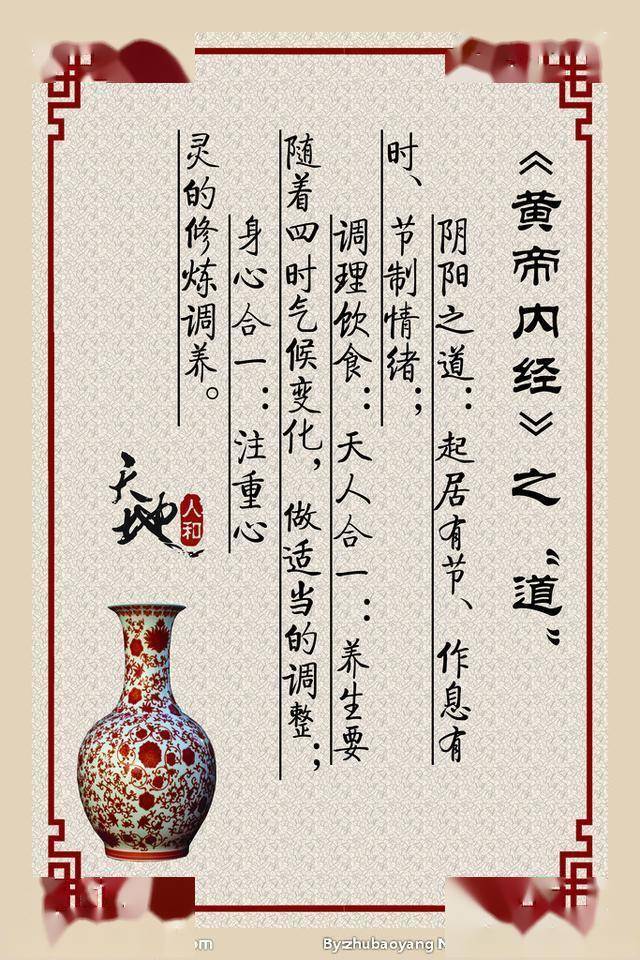 《黄帝内经》之“道”
阴阳之道：起居有节、作息有
时、节制情绪；
调理饮食：天人合一：养生要
随着四时气候变化，做适当的调整；
身心合一：注重心
灵的修炼调养。
天地
人和
om
By:zhubaoyang N